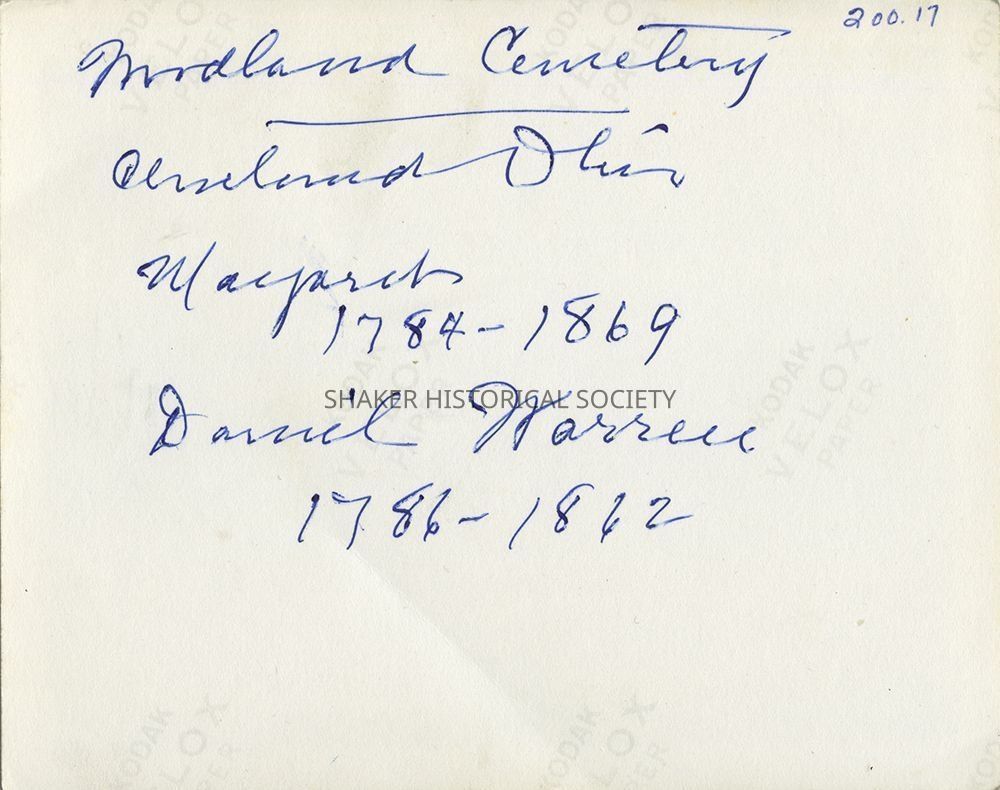 200.17
Woodland Cemetery
Cleveland Ohio
Margaret
1784-1869
SHAKER HISTORICAL SOCIETY
Daniel Warren
1786-1862
KODAK
VELOX
PAPER
KODAK
VELOX
PAPER
KODAK
VELOX
PAPER
KODAK
VELOX
PAPER